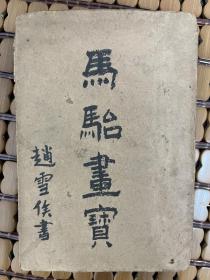 馬駘畫寶
趙雪侯書